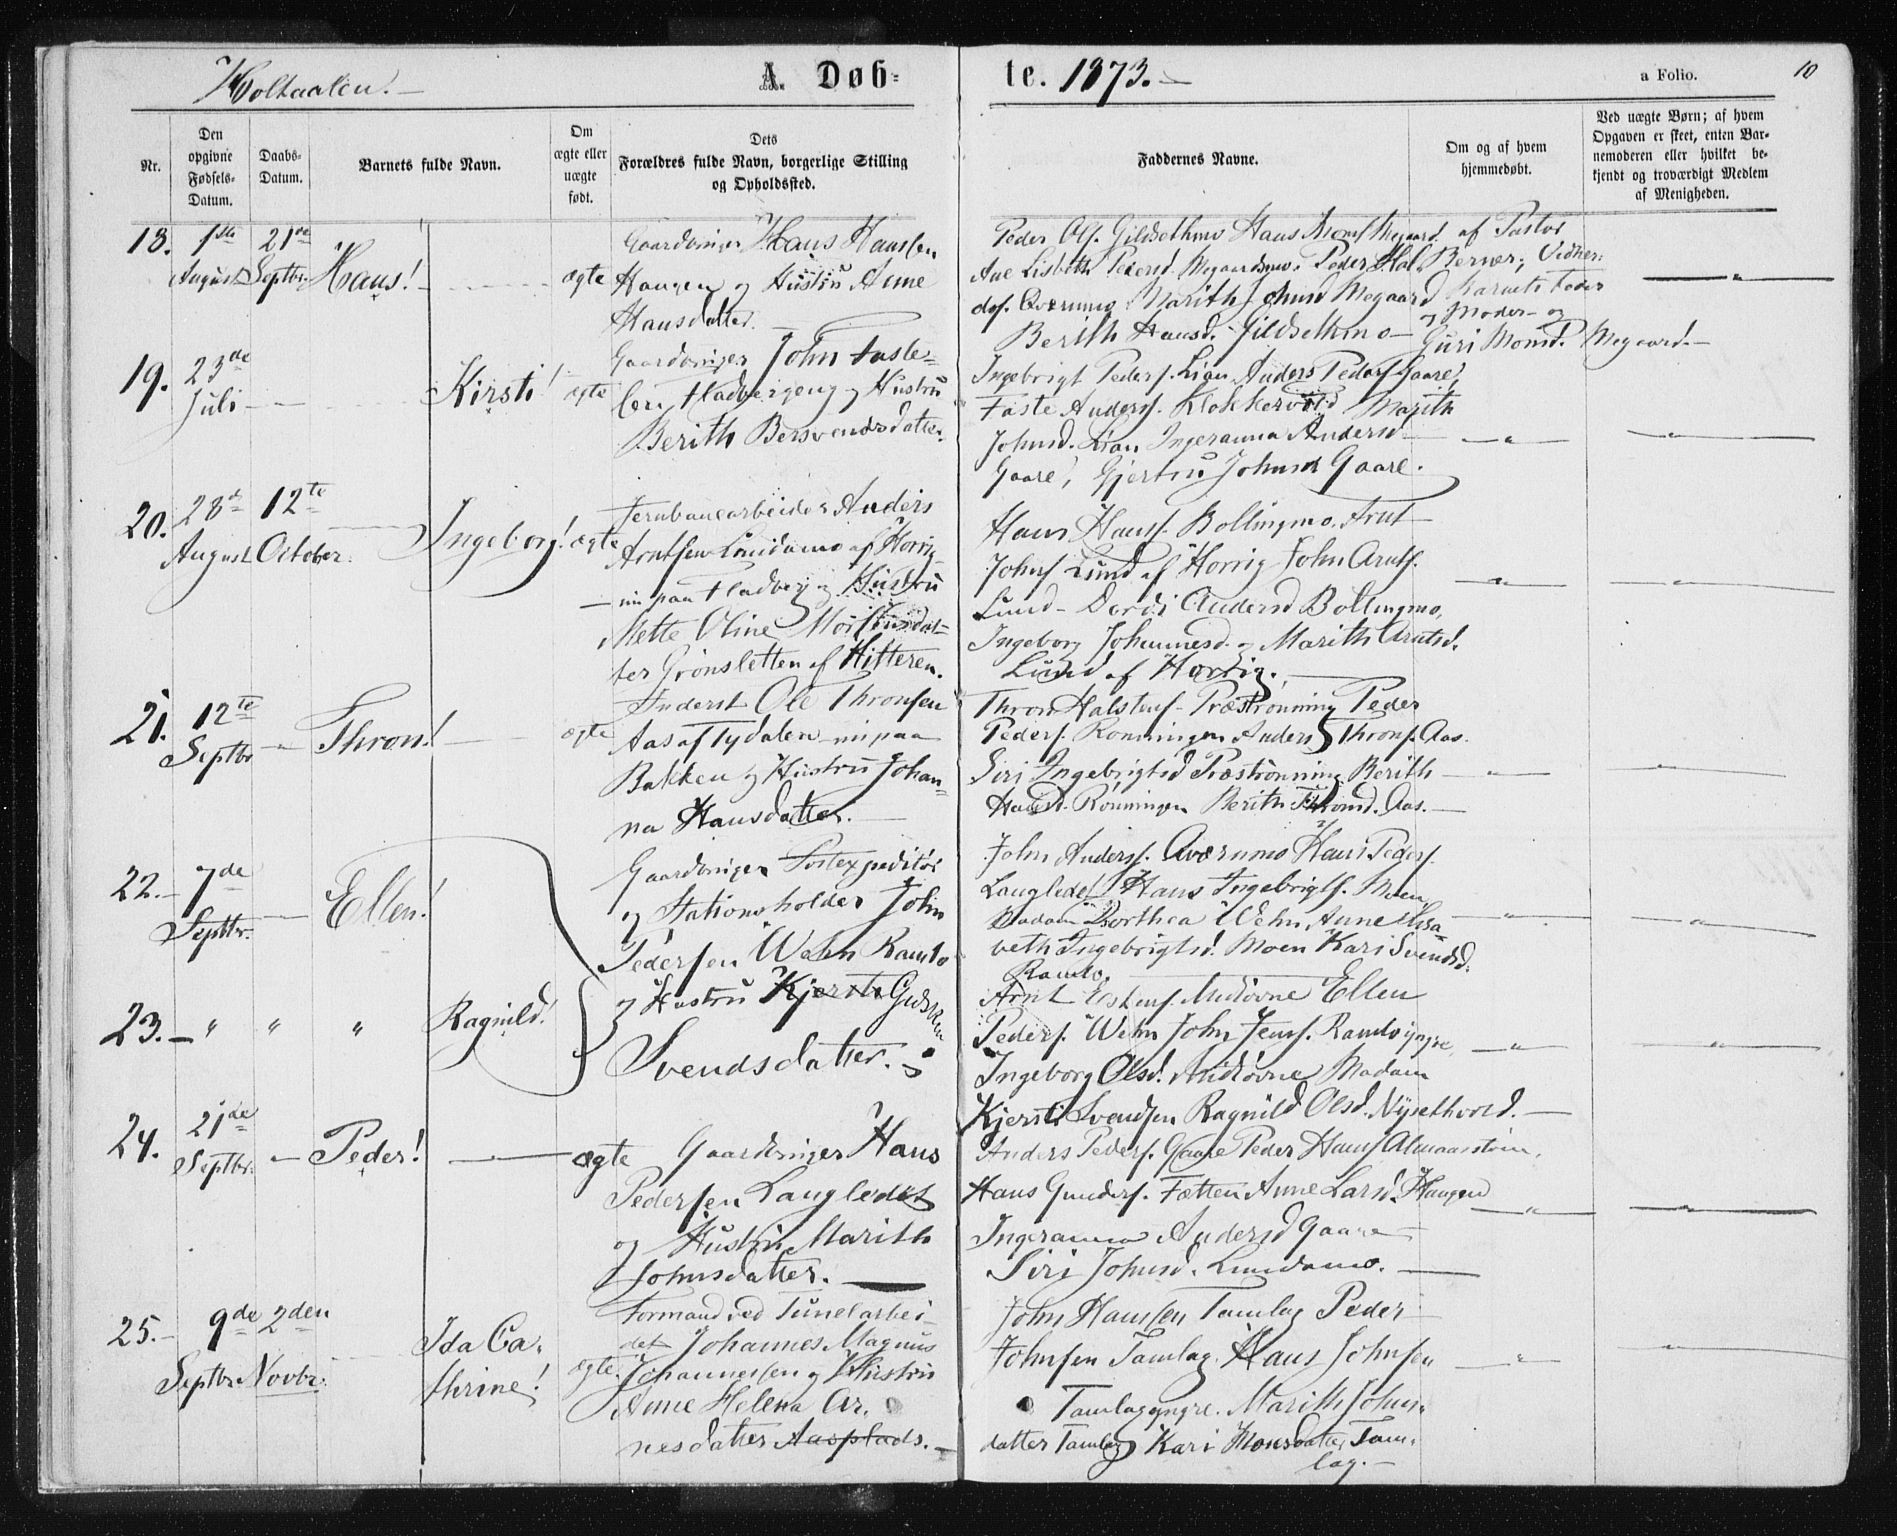 Holtaalen!
A. Døb-
te. 1873.
a Folio.
10
Nr.
Den
opgivne
Fødsels-
Datum.
Daabs-
Datum.
Barnets fulde Navn.
Om
ægte eller
uægte
født.
Dets
Forældres fulde Navn, borgerlige Stilling
og Opholdssted.
Faddernes Navne.
Om og af hvem
hjemmedøbt.
Ved uægte Børn; af hvem
Opgaven er skeet, enten Bar-
nemoderen eller hvilket be-
kjendt og troværdigt Medlem
af Menigheden.
18. 1ste 21de
August Septbr. Hans! ægte
Gaardbruger Hans Hansen
Haugen og Hustru Anne
Hansdatter.
Peder Ols. Gildsethmo Hans Monss Megaard
Ane Lisbeth Pedersd. Megaardsmo. Peder
Marith Johnsd Megaard
Berith Hansd. Gildsethmo
af Pastor
Berner; Vidner:
Barnets Fader
og Moder og
Guri Monsd. Megaard.
19. 23de
Juli Kirsti! ægte
Gaardbruger John Faste-
sen Hladbergeng og Hustru
Berith Bersvendsdatter.
Ingebrigt Peders. Lian Anders Peders Gaare,
Faste Anders. Klokkervold Marith
Johnsd. Lian Ingeranna Andersd
Gaare, Gjertru Johnsd Gaare.
20. 28de 12te
August October. Ingeborg! ægte
Jernbanearbeider Anders
Arntsen Lundamo af Horrig
nu paa Hladberg og Hustru
Mette Oline Mortensdat-
ter Grønsletten af Hitteren.
Hans Hans. Bollingmo, Arnt
Johns Lund af Horrig John Arnts.
Lund Dordi Andersd Bollingmo,
Ingeborg Johannesd. og Marith Arntsd.
Lund af Horrig.
21. 12te
Septbr Thron! ægte
Inderst Ole Thronsen
Aas af Tydalen nu paa
Bakken og Hustru Johan-
na Hansdatter.
Thron Halstens. Præstrønning Peder
Peders. Rønningen Anders Throns. Aas.
Siri Ingebrigtsd Præstrønning Berith
Hansd. Rønningen Berith Thronsd. Aas.
22. 7de
Septbr. Ellen!
Gaardbruger Postexpeditør
og Stationsholder John
Pedersen Wehn Ramlo
og Hustru Kjersti Guruan
Svendsdatter.
John Anders. Qværnmo Hans Peders.
Langledet Hans Ingebrigts. Moen
Madam Dorthea Wehn, Anne Elisa-
beth Ingebrigtsd. Moen Kari Svendsd.
Ramlo.
23. " " " Ragnild!
Arnt Estens. Midtovne Ellen
Peders. Wehn John Jens. Ramlo yngre,
Ingeborg Olsd. Midtovne Madam
Kjersti Svendsen Ragnild Olsd. Nysethvold.
24. 21de
Septbr. Peder! ægte
Gaardbruger Hans
Pedersen Langledet
og Hustru Marith
Johnsdatter.
Anders Peders. Gaare Peder Hans Almaasstrøm,
Hans Gunders. Tætten Anne Larsd. Haugen
Ingeranna Andersd Gaare
Siri Johnsd. Lundamo.
25. 9de 2den
Septbr. Novbr. Ida Ca-
thrine! ægte
Formand ved Tunelarbei-
det Johannes Magnus
Johannessen og Hustru
Anne Helena Ar-
nesdatter Aasplads.
John Hansen Tamlag Peder
Johnsen Tamlag Hans Johnsen
Tamlag yngre. Marith Johns-
datter Tamlag Kari Monsdatter Tam-
lag.